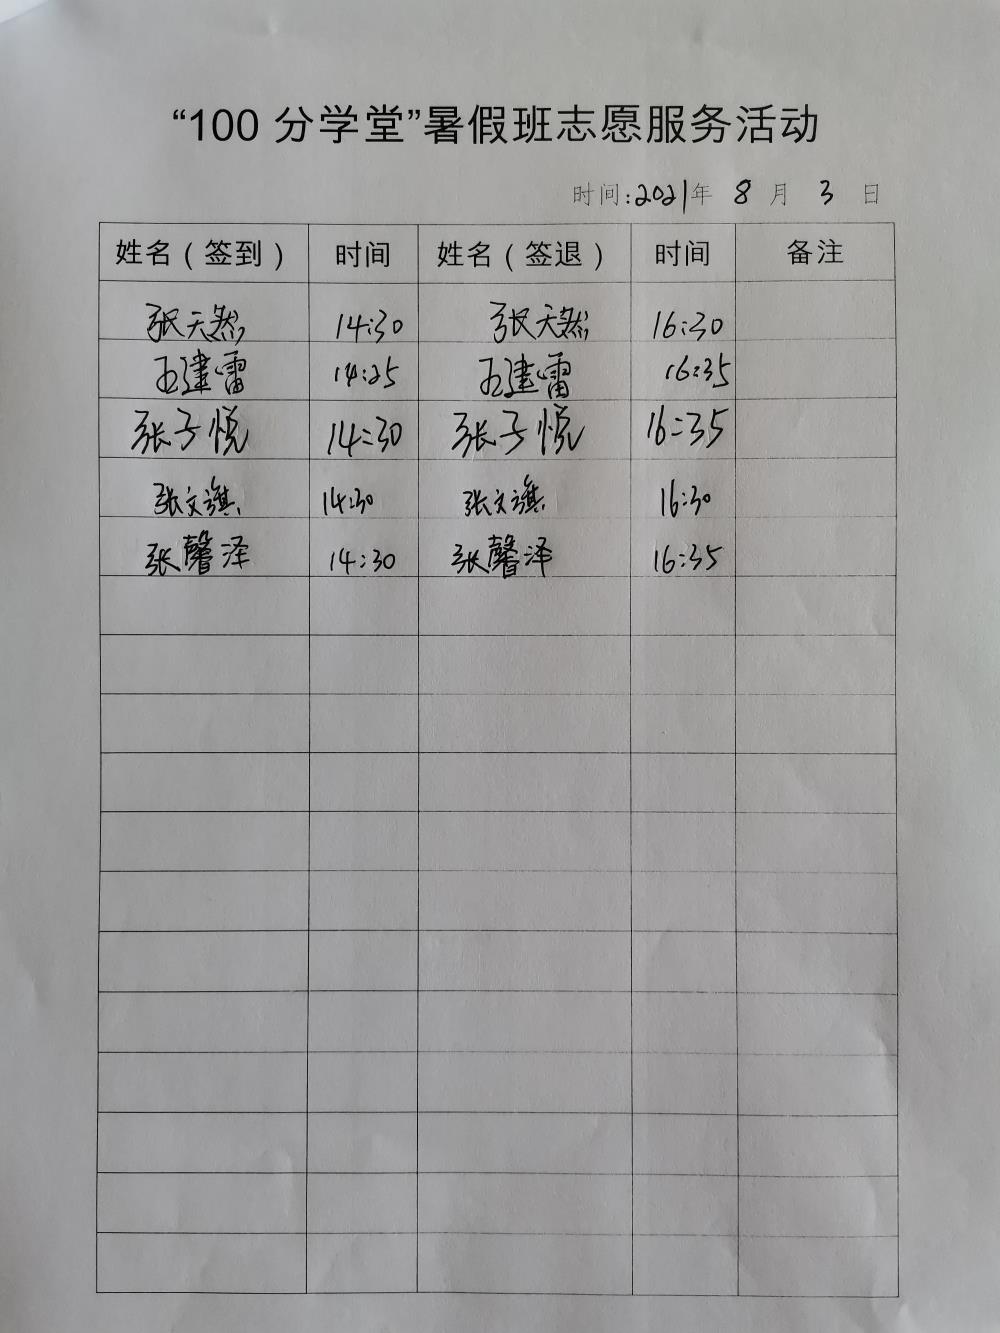 “100 分学堂”暑假班志愿服务活动
时间:2021年 8 月 3 日
姓名（签到） 时间 姓名（签退） 时间 备注
张天然 14:30 张天然 16:30
王建雷 14:25 王建雷 16:35
张子悦 14:30 张子悦 16:35
张文旗 14:30 张文旗 16:30
张馨泽 14:30 张馨泽 16:35